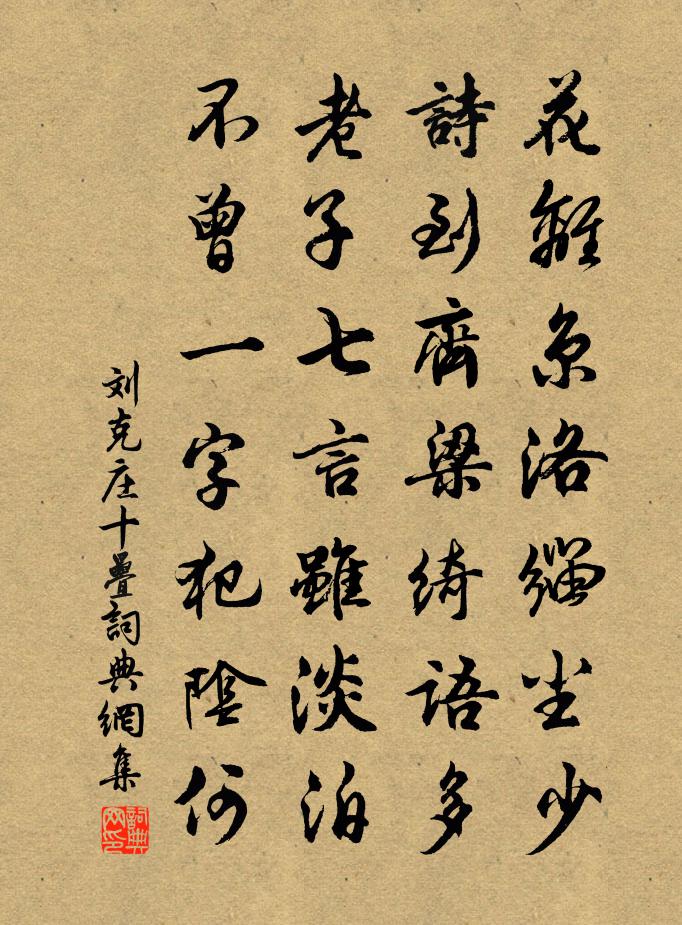 花離京洛緇塵少
詩到齊梁綺語多
老子七言雖淡泊
不曾一字犯陰何
刘克庄十疊詞典網集
詞典网印